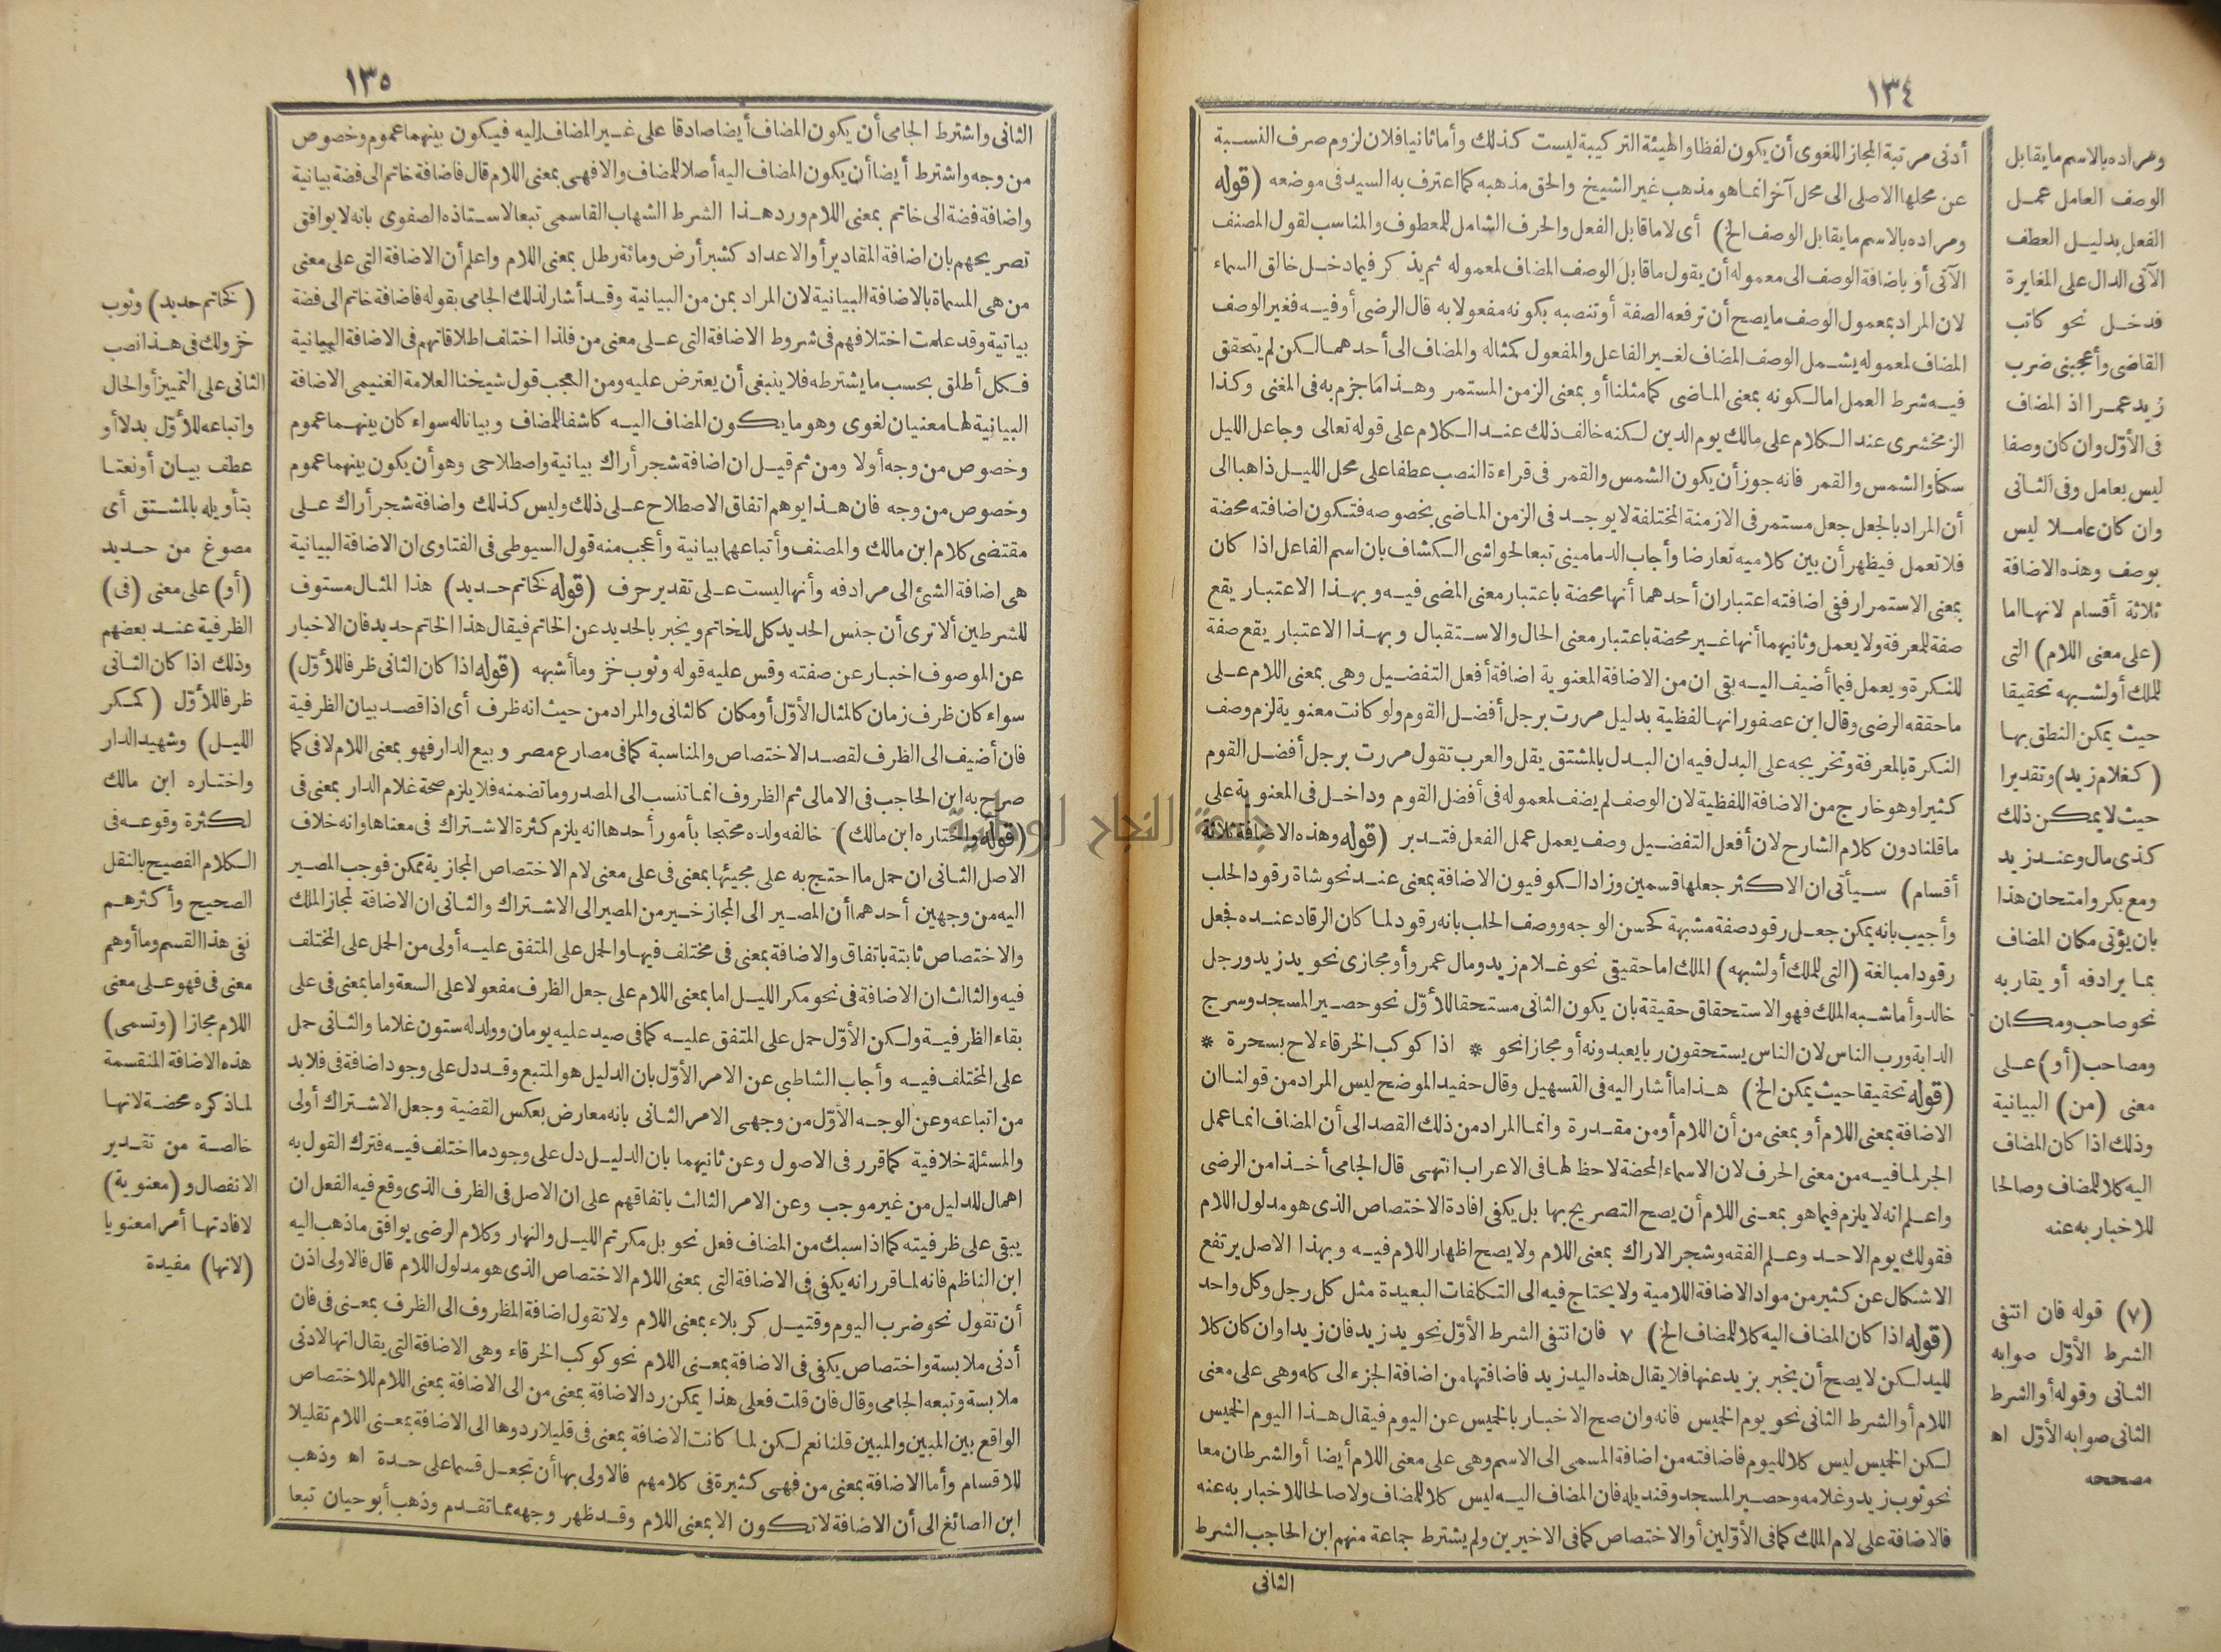 ١٣٤
أدنى مرتبة المجاز اللغوى أن يكون لفظا والهيئة التركيبية ليست كذلك وأما ثانيا فلان لزوم صرف النسبة
عن محلها الاصلى الى محل آخر انما هو مذهب غير الشيخ والحق مذهبه كما اعترف به السيد فى موضعه (قوله
ومراده بالاسم ما يقابل الوصف الخ) أى لا ما قابل الفعل والحرف الشامل للمعطوف والمناسب لقول المصنف
الآتى أو باضافة الوصف الى معموله أن يقول ما قابل الوصف المضاف لمعموله ثم يذكر فيما دخل خالق السماء
لان المراد بمعمول الوصف ما يصح أن ترفعه الصفة أو تنصبه بكونه مفعولا به قال الرضى أو فيه فغير الوصف
المضاف لمعموله يشمل الوصف المضاف لغير الفاعل والمفعول كمثاله والمضاف الى أحدهما لكن لم يتحقق
فيه شرط العمل اما لكونه بمعنى الماضى كما مثلنا أو بمعنى الزمن المستمر وهذا ما جزم به فى المغنى وكذا
الزمخشرى عند الكلام على مالك يوم الدين لكنه خالف ذلك عند الكلام على قوله تعالى وجاعل الليل
سكنا والشمس والقمر فانه جوز أن يكون الشمس والقمر فى قراءة النصب عطفا على محل الليل ذاهبا الى
أن المراد بالجعل جعل مستمر فى الازمنة المختلفة لا يوجد فى الزمن الماضى بخصوصه فتكون اضافته محضة
فلا تعمل فيظهر أن بين كلاميه تعارضا وأجاب الدمامينى تبعا لحواشى الكشاف بان اسم الفاعل اذا كان
بمعنى الاستمرار ففى اضافته اعتباران أحدهما أنها محضة باعتبار معنى المضى فيه وبهذا الاعتبار يقع
صفة للمعرفة ولا يعمل وثانيهما أنها غير محضة باعتبار معنى الحال والاستقبال وبهذا الاعتبار يقع صفة
للنكرة ويعمل فيما أضيف اليه بقى ان من الاضافة المعنوية اضافة أفعل التفضيل وهى بمعنى اللام على
ما حققه الرضى وقال ابن عصفور انها لفظية بدليل مررت برجل أفضل القوم ولو كانت معنوية لزم وصف
النكرة بالمعرفة وتخريجه على البدل فيه ان البدل بالمشتق يقل والعرب تقول مررت برجل أفضل القوم
كثيرا وهو خارج من الاضافة اللفظية لان الوصف لم يضف لمعموله فى أفضل القوم وداخل فى المعنوية على
ما قلنا دون كلام الشارح لان أفعل التفضيل وصف يعمل عمل الفعل فتدبر (قوله وهذه الاضافة ثلاثة
أقسام) سيأتى ان الاكثر جعلها قسمين وزاد الكوفيون الاضافة بمعنى عند نحو شاة رقود الحلب
وأجيب بانه يمكن جعل رقود صفة مشبهة كحسن الوجه ووصف الحلب بانه رقود لما كان الرقاد عنده فجعل
رقودا مبالغة (التى للملك أو لشبهه) الملك اما حقيقى نحو غلام زيد ومال عمرو أو مجازى نحو يد زيد ورجل
خالد وأما شبه الملك فهو الاستحقاق حقيقة بان يكون الثانى مستحقا للأوّل نحو حصير المسجد وسرج
الدابة ورب الناس لان الناس يستحقون ربا يعبدونه أو مجازا نحو * اذا كوكب الخرقاء لاح بسحرة *
(قوله تحقيقا حيث يمكن الخ) هذا ما أشار اليه فى التسهيل وقال حفيد الموضح ليس المراد من قولنا ان
الاضافة بمعنى اللام أو بمعنى من أن اللام أو من مقدرة وانما المراد من ذلك القصد الى أن المضاف انما عمل
الجر لما فيه من معنى الحرف لان الاسماء المحضة لا حظ لها فى الاعراب انتهى قال الجامى أخذا من الرضى
واعلم انه لا يلزم فيما هو بمعنى اللام أن يصح التصريح بها بل يكفى افادة الاختصاص الذى هو مدلول اللام
فقولك يوم الاحد وعلم الفقه وشجر الاراك بمعنى اللام ولا يصح اظهار اللام فيه وبهذا الاصل يرتفع
الاشكال عن كثير من مواد الاضافة اللامية ولا يحتاج فيه الى التكلفات البعيدة مثل كل رجل وكل واحد
(قوله اذا كان المضاف اليه كلا للمضاف الخ) ٧ فان انتفى الشرط الأوّل نحو يد زيد فان زيدا وان كان كلا
لليد لكن لا يصح أن يخبر بزيد عنها فلا يقال هذه اليد زيد فاضافتها من اضافة الجزء الى كله وهى على معنى
اللام أو الشرط الثانى نحو يوم الخميس فانه وان صح الاخبار بالخميس عن اليوم فيقال هذا اليوم الخميس
لكن الخميس ليس كلا لليوم فاضافته من اضافة المسمى الى الاسم وهى على معنى اللام أيضا أو الشرطان معا
نحو ثوب زيد وغلامه وحصير المسجد وقنديله فان المضاف اليه ليس كلا للمضاف ولا صالحا للاخبار به عنه
فالاضافة على لام الملك كما فى الأوّلين أو الاختصاص كما فى الاخيرين ولم يشترط جماعة منهم ابن الحاجب الشرط
الثانى
ومراده بالاسم ما يقابل
الوصف العامل عمل
الفعل بدليل العطف
الآتى الدال على المغايرة
فدخل نحو كاتب
القاضى وأعجبنى ضرب
زيد عمرا اذ المضاف
فى الأوّل وان كان وصفا
ليس بعامل وفى الثانى
وان كان عاملا ليس
بوصف وهذه الاضافة
ثلاثة أقسام لانها اما
(على معنى اللام) التى
للملك أو لشبهه تحقيقا
حيث يمكن النطق بها
(كغلام زيد) وتقديرا
حيث لا يمكن ذلك
كذى مال وعند زيد
ومع بكر وامتحان هذا
بان يؤتى مكان المضاف
بما يرادفه أو يقاربه
نحو صاحب ومكان
ومصاحب (أو) على
معنى (من) البيانية
وذلك اذا كان المضاف
اليه كلا للمضاف وصالحا
للاخبار به عنه
(٧) قوله فان انتفى
الشرط الأوّل صوابه
الثانى وقوله أو الشرط
الثانى صوابه الأوّل اه
مصححه
١٣٥
الثانى واشترط الجامى أن يكون المضاف أيضا صادقا على غير المضاف إليه فيكون بينهما عموم وخصوص
من وجه واشترط أيضا أن يكون المضاف اليه أصلا للمضاف والا فهى بمعنى اللام قال فاضافة خاتم الى فضة بيانية
واضافة فضة الى خاتم بمعنى اللام ورد هذا الشرط الشهاب القاسمى تبعا لاستاذه الصفوى بانه لا يوافق
تصريحهم بان اضافة المقادير أو الاعداد كشبر أرض ومائة رطل بمعنى اللام واعلم أن الاضافة التى على معنى
من هى المسماة بالاضافة البيانية لان المراد بمن من البيانية وقد أشار لذلك الجامى بقوله فاضافة خاتم الى فضة
بيانية وقد علمت اختلافهم فى شروط الاضافة التى على معنى من فلذا اختلف اطلاقاتهم فى الاضافة البيانية
فكل أطلق بحسب ما يشترطه فلا ينبغى أن يعترض عليه ومن العجب قول شيخنا العلامة الغنيمى الاضافة
البيانية لها معنيان لغوى وهو ما يكون المضاف اليه كاشفا للمضاف وبيانا له سواء كان بينهما عموم
وخصوص من وجه أولا ومن ثم قيل ان اضافة شجر أراك بيانية واصطلاحى وهو أن يكون بينهما عموم
وخصوص من وجه فان هذا يوهم اتفاق الاصطلاح على ذلك وليس كذلك واضافة شجر أراك على
مقتضى كلام ابن مالك والمصنف وأتباعهما بيانية وأعجب منه قول السيوطى فى الفتاوى ان الاضافة البيانية
هى اضافة الشئ الى مرادفه وأنها ليست على تقدير حرف (قوله كخاتم حديد) هذا المثال مستوف
للشرطين ألا ترى أن جنس الحديد كل للخاتم ويخبر بالحديد عن الخاتم فيقال هذا الخاتم حديد فان الاخبار
عن الموصوف اخبار عن صفته وقس عليه قوله وثوب خز وما أشبهه (قوله اذا كان الثانى ظرفا للأوّل)
سواء كان ظرف زمان كالمثال الأوّل أو مكان كالثانى والمراد من حيث انه ظرف أى اذا قصد بيان الظرفية
فان أضيف الى الظرف لقصد الاختصاص والمناسبة كما فى مصارع مصر وبيع الدار فهو بمعنى اللام لا فى كما
صرح به ابن الحاجب فى الامالى ثم الظروف انما تنسب الى المصدر وما تضمنه فلا يلزم صحة غلام الدار بمعنى فى
(قوله واختاره ابن مالك) خالفه ولده محتجا بأمور أحدها انه يلزم كثرة الاشتراك فى معناها وانه خلاف
الاصل الثانى ان حمل ما احتج به على مجيئها بمعنى فى على معنى لام الاختصاص المجازية ممكن فوجب المصير
اليه من وجهين أحدهما أن المصير الى المجاز خير من المصير الى الاشتراك والثانى ان الاضافة لمجاز الملك
والاختصاص ثابتة باتفاق والاضافة بمعنى فى مختلف فيها والحمل على المتفق عليه أولى من الحمل على المختلف
فيه والثالث ان الاضافة فى نحو مكر الليل اما بمعنى اللام على جعل الظرف مفعولا على السعة واما بمعنى فى على
بقاء الظرفية ولكن الأوّل حمل على المتفق عليه كما فى صيد عليه يومان وولد له ستون غلاما والثانى حمل
على المختلف فيه وأجاب الشاطبى عن الامر الأوّل بان الدليل هو المتبع وقد دل على وجود اضافة فى فلا بد
من اتباعه وعن الوجه الأوّل من وجهى الامر الثانى بانه معارض بعكس القضية وجعل الاشتراك أولى
والمسئلة خلافية كما قرر فى الاصول وعن ثانيهما بان الدليل دل على وجود ما اختلف فيه فترك القول به
اهمال للدليل من غير موجب وعن الامر الثالث باتفاقهم على ان الاصل فى الظرف الذى وقع فيه الفعل ان
يبقى على ظرفيته كما اذا سبك من المضاف فعل نحو بل مكرتم الليل والنهار وكلام الرضى يوافق ما ذهب اليه
ابن الناظم فانه لما قرر انه يكفى فى الاضافة التى بمعنى اللام الاختصاص الذى هو مدلول اللام قال فالاولى اذن
أن تقول نحو ضرب اليوم وقتيل كربلاء بمعنى اللام ولا تقول اضافة المظروف الى الظرف بمعنى فى فان
أدنى ملابسة واختصاص يكفى فى الاضافة بمعنى اللام نحو كوكب الخرقاء وهى الاضافة التى يقال انها لادنى
ملابسة وتبعه الجامى وقال فان قلت فعلى هذا يمكن رد الاضافة بمعنى من الى الاضافة بمعنى اللام للاختصاص
الواقع بين المبين والمبين قلنا نعم لكن لما كانت الاضافة بمعنى فى قليلا ردوها الى الاضافة بمعنى اللام تقليلا
للاقسام وأما الاضافة بمعنى من فهى كثيرة فى كلامهم فالاولى بها أن تجعل قسما على حدة اه وذهب
ابن الصائغ الى أن الاضافة لا تكون الا بمعنى اللام وقد ظهر وجهه مما تقدم وذهب أبو حيان تبعا
(كخاتم حديد) وثوب
خز ولك فى هذا نصب
الثانى على التمييز أو الحال
واتباعه للأوّل بدلا أو
عطف بيان أو نعتا
بتأويله بالمشتق أى
مصوغ من حديد
(أو) على معنى (فى)
الظرفية عند بعضهم
وذلك اذا كان الثانى
ظرفا للأوّل (كمكر
الليل) وشهيد الدار
واختاره ابن مالك
لكثرة وقوعه فى
الكلام الفصيح بالنقل
الصحيح وأكثرهم
نفى هذا القسم وما أوهم
معنى فى فهو على معنى
اللام مجازا (وتسمى)
هذه الاضافة المنقسمة
لما ذكره محضة لانها
خالصة من تقدير
الانفصال و(معنوية)
لافادتها أمرا معنويا
(لانها) مفيدة